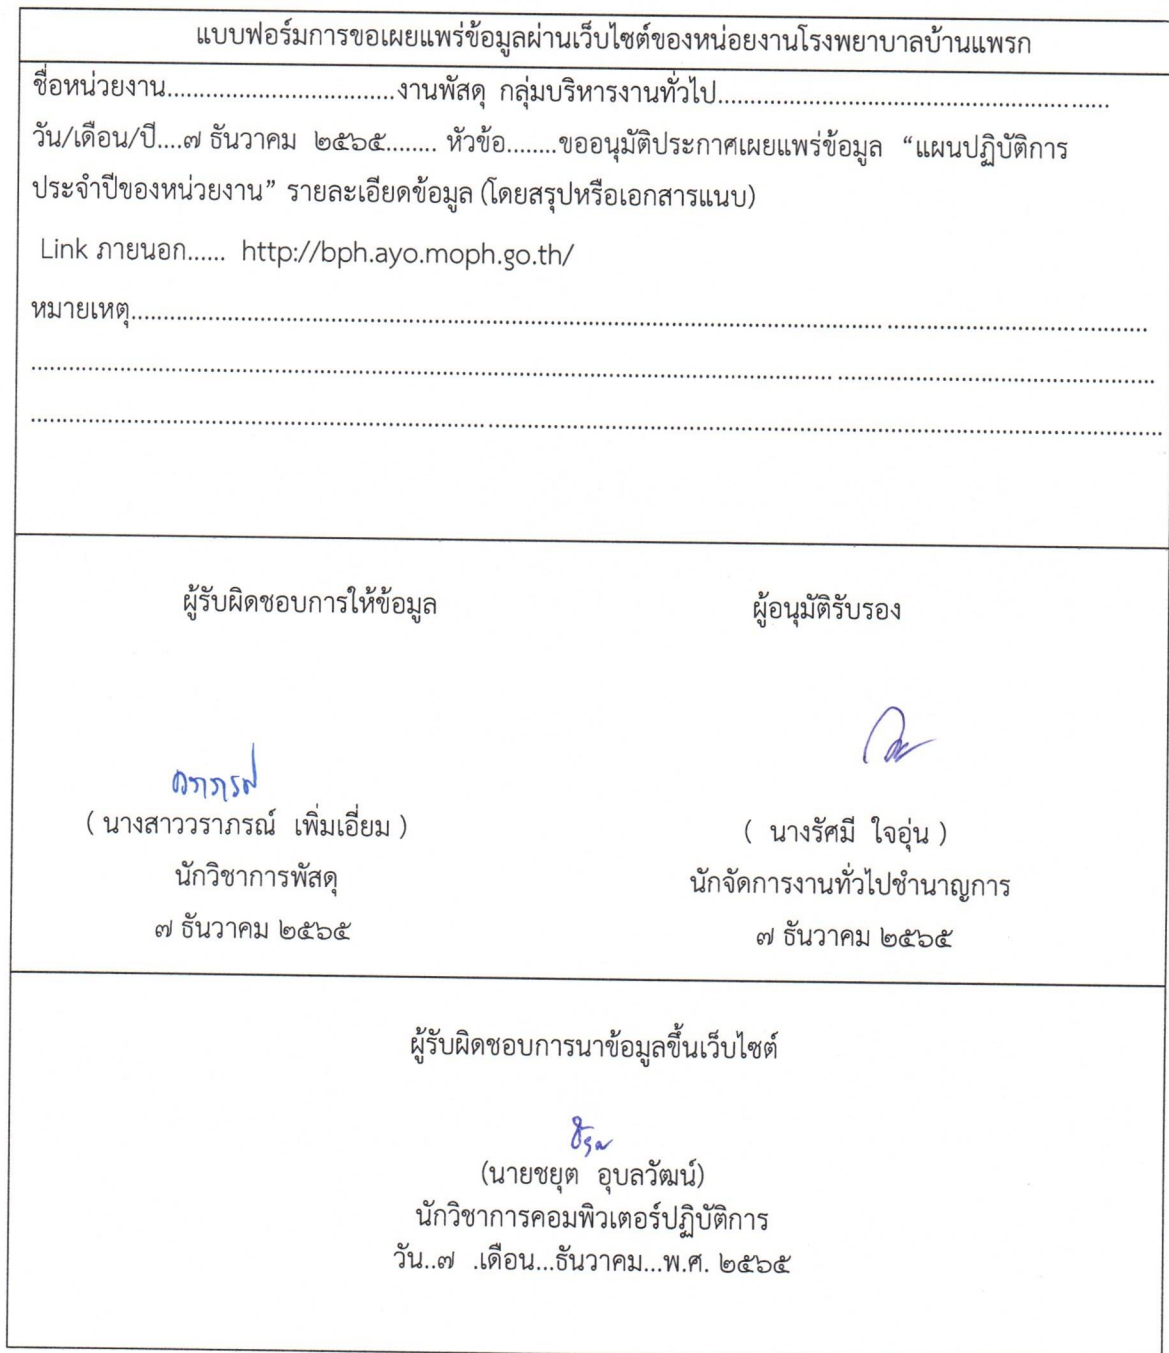 แบบฟอร์มการขอเผยแพร่ข้อมูลผ่านเว็บไซต์ของหน่อยงานโรงพยาบาลบ้านแพรก
ชื่อหน่วยงาน...................................งานพัสดุ กลุ่มบริหารงานทั่วไป............................................................
วัน/เดือน/ปี....๗ ธันวาคม ๒๕๖๕........ หัวข้อ........ขออนุมัติประกาศเผยแพร่ข้อมูล “แผนปฏิบัติการ
ประจำปีของหน่วยงาน” รายละเอียดข้อมูล (โดยสรุปหรือเอกสารแนบ)
Link ภายนอก...... http://bph.ayo.moph.go.th/
หมายเหตุ......................................................................................................................................................
ผู้รับผิดชอบการให้ข้อมูล ผู้อนุมัติรับรอง
วราภรณ์
( นางสาววราภรณ์ เพิ่มเอี่ยม ) ( นางรัศมี ใจอุ่น )
นักวิชาการพัสดุ นักจัดการงานทั่วไปชำนาญการ
๗ ธันวาคม ๒๕๖๕ ๗ ธันวาคม ๒๕๖๕
ผู้รับผิดชอบการนาข้อมูลขึ้นเว็บไซต์
(นายชยุต อุบลวัฒน์)
นักวิชาการคอมพิวเตอร์ปฏิบัติการ
วัน..๗ .เดือน...ธันวาคม...พ.ศ. ๒๕๖๕